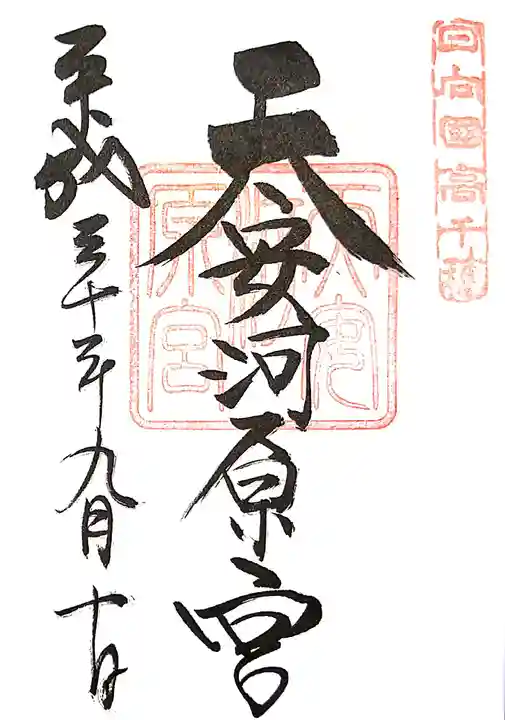 日向國高千穂
天安河原宮
天安河原宮
平成三十年九月十日